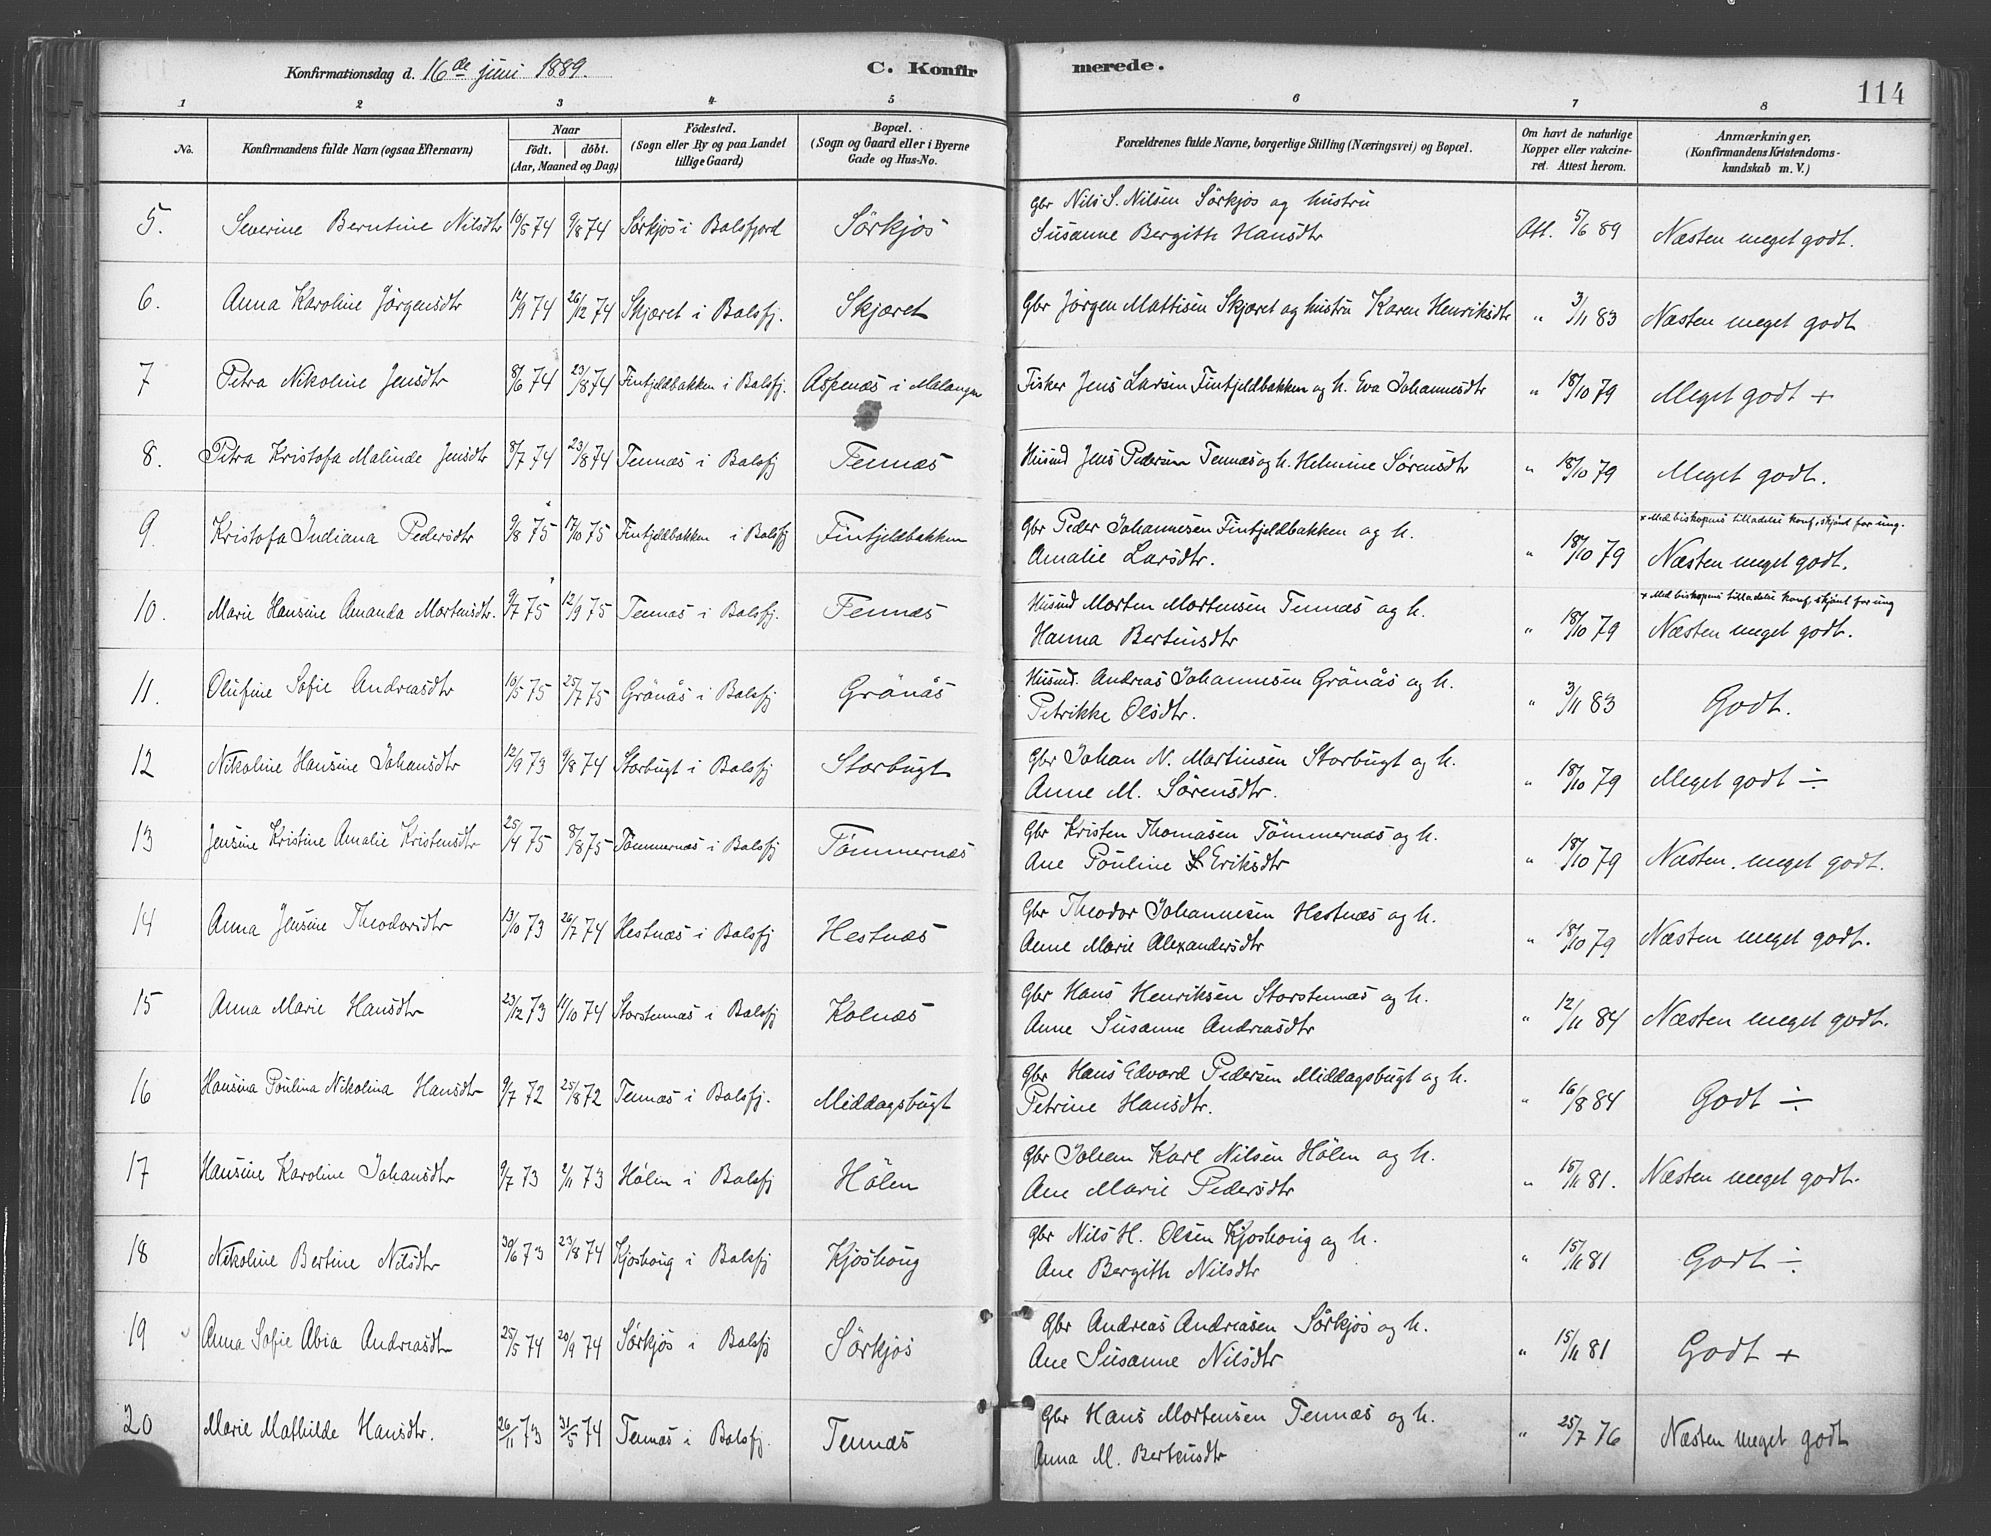 Konfirmationsdag d. 16de juni 1889. C. Konfirmerede. 114
1 2 3 4 5 6 7 8
No. Konfirmandens fulde Navn (ogsaa Efternavn) Naar födt. döbt. (Aar, Maaned og Dag) Födested. (Sogn eller By og paa Landet tillige Gaard) Bopæl. (Sogn og Gaard eller i Byerne Gade og Hus-No. Forældrenes fulde Navne, borgerlige Stilling (Næringsvei) og Bopæl. Om havt de naturlige Kopper eller vakcineret. Attest herom. Anmærkninger. (Konfirmandens Kristendomskundskab m. V.)
5. Severine Berntine Nilsdtr 10/5 74 9/8 74 Sørkjos i Balsfjord Sørkjos Gbr Nils S. Nilsen Sørkjos og hustru
Susanne Bergitte Hansdtr Att. 5/6 89 Næsten meget godt.
6. Anna Karoline Jørgensdtr 12/9 74 26/12 74 Skjæret i Balsfj. Skjæret Gbr Jørgen Mattisen Skjæret og hustru Karen Henriksdtr " 3/11 83 Næsten meget godt
7 Petra Nikoline Jensdtr 8/6 74 23/8 74 Finfjeldbakken i Balsfj. Aspenæs i Malangen Fisker Jens Larsen Finfjeldbakken og h. Eva Johannesdtr " 18/10 79 Meget godt +
8. Petra Kristofa Malinde Jensdtr 8/7 74 23/8 74 Tennæs i Balsfj Tennæs Husmd Jens Pedersen Tennæs og h. Helmine Sørensdtr " 18/10 79 Meget godt.
9. Kristofa Indiana Pedersdtr 9/8 75 17/10 75 Finfjeldbakken i Balsfj Finfjeldbakken Gbr Peder Johannesen Finfjeldbakken og h.
Amalie Larsdtr. " 18/10 79 + Med biskopens tilladelse konf., skjønt for ung.
Næsten meget godt.
10. Marie Hansine Amanda Mortensdtr. 9/7 75 12/9 75 Tennæs i Balsfj. Tennæs Husmd Morten Mortensen Tennæs og h.
Hanna Bertensdtr " 18/10 79 + Med biskopens tilladelse konf., skjønt for ung
Næsten meget godt.
11. Olufine Sofie Andreasdtr 10/5 75 25/7 75 Grönås i Balsfj Grönås Husmd. Andreas Johannesen Grönås og h.
Petrikke Olsdtr. " 3/11 83 Godt.
12 Nikoline Hansine Johansdtr 12/9 73 9/8 74 Storbugt i Balsfj Storbugt Gbr Johan N. Martinsen Storbugt og h.
Anne M. Sörensdtr. " 18/10 79 Meget godt ÷
13 Jensine Kristine Amalie Kristensdtr 25/4 75 8/8 75 Tömmernæs i Balsfj Tömmernæs Gbr Kristen Thomasen Tömmernæs og h.
Ane Pouline Eriksdtr " 18/10 79 Næsten meget godt.
14 Anna Jensine Theodorsdtr 13/10 73 26/7 74 Hestnæs i Balsfj Hestnæs Gbr Theodor Johannesen Hestnæs og h.
Anne Marie Alexandersdtr " 18/10 79 Næsten meget godt.
15 Anna Marie Hansdtr 23/12 73 11/10 74 Storstennæs i Balsfj Kolnæs Gbr Hans Henriksen Storstennæs og h.
Anne Susanne Andreasdtr " 12/11 84 Næsten meget godt.
16 Hansina Poulina Nikolina Hansdtr 9/7 72 25/8 72 Tennæs i Balsfj. Middagsbugt Gbr Hans Edvard Pedersen Middagsbugt og h.
Petrine Hansdtr. " 16/8 84 Godt ÷
17 Hansine Karoline Johansdtr 9/7 73 2/11 73 Hölen i Balsfj Hölen Gbr Johan Karl Nilsen Hölen og h.
Ane Marie Pedersdtr " 15/11 81. Næsten meget godt.
18 Nikoline Bertine Nilsdtr 30/6 73 23/8 74 Kjoshoug i Balsfj Kjoshoug Gbr Nils H. Olsen Kjoshoug og h.
Ane Bergitte Nilsdtr " 15/11 81 Godt ÷
19 Anna Sofie Abia Andreasdtr 25/5 74 20/9 74 Sørkjos i Balsfj Sørkjos Gbr Andreas Andreasen Sørkjos og h.
Ane Susanne Nilsdtr " 15/11 81 Godt +
20 Marie Mathilde Hansdtr. 26/11 73 31/5 74 Tennæs i Balsfj. Tennæs Gbr Hans Mortensen Tennæs og h.
Anna M. Bertensdtr " 25/7 76 Næsten meget godt